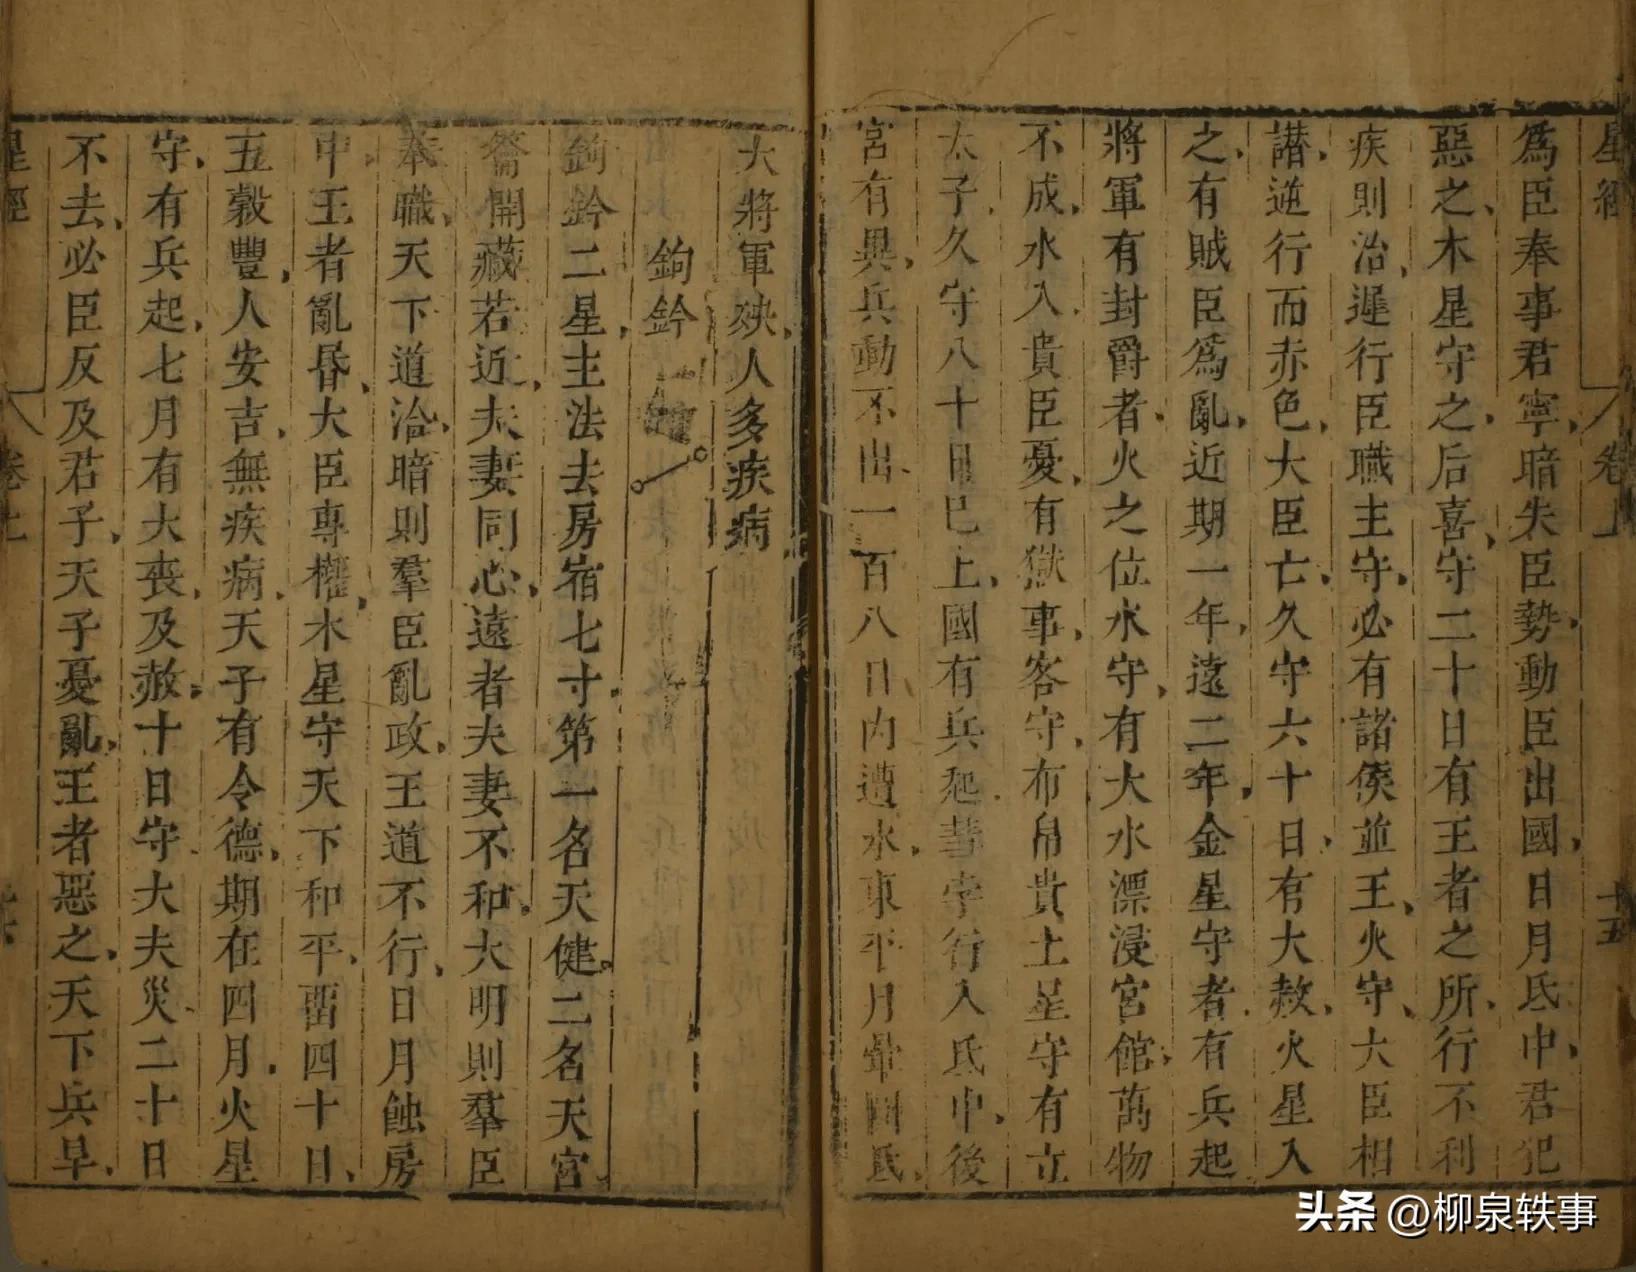 星經 卷上 十五
為臣奉事君寧暗失臣勢動臣出國日月氐中君犯
惡之木星守之后喜守二十日有王者之所行不利
疾則治遲行臣職主守必有諸侯並王火守大臣相
譖逆行而赤色大臣亡久守六十日有大赦火星入
之有賊臣為亂近期一年遠二年金星守者有兵起
將軍有封爵者火之位水守有大水漂浸宮館萬物
不成水入貴臣憂有獄事客守布帛貴土星守有立
太子久守八十日已上國有兵起彗孛行入氐中後
宮有異兵動不出一百八日內遭水東平月暈圍氐
大將軍殃人多疾病
鉤鈐
鉤鈐二星主法去房宿七寸第一名天健二名天宮
籥開藏若近夫妻同心遠者夫妻不和大明則羣臣
奉職天下道治暗則羣臣亂政王道不行日月蝕房
中王者亂昏大臣專權木星守天下和平畱四十日
五穀豐人安吉無疾病天子有令德期在四月火星
守有兵起七月有大喪及赦十日守大夫災二十日
不去必臣反及君子天子憂亂王者惡之天下兵旱
星經 卷上
头条 @柳泉轶事